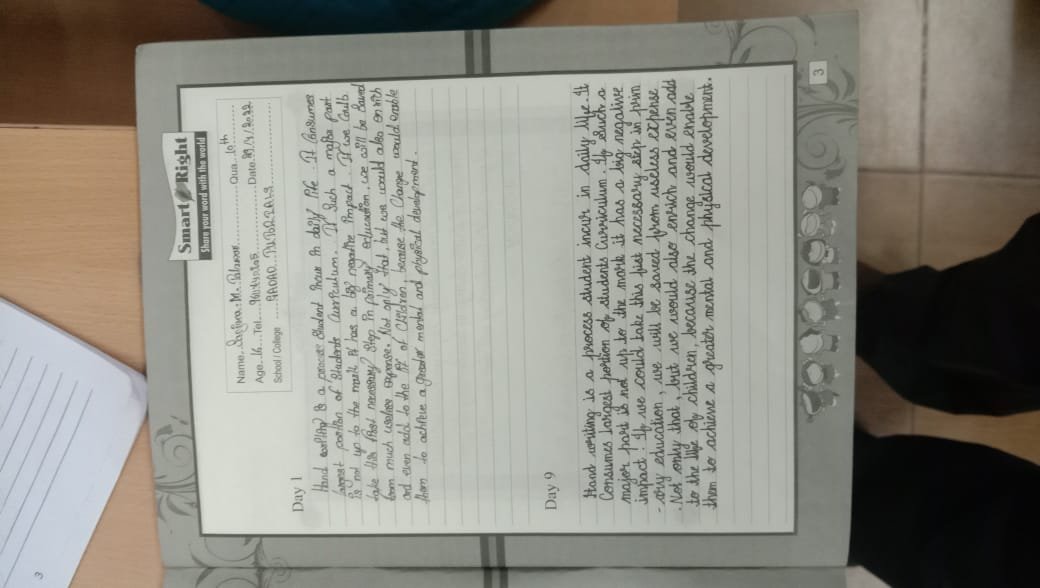 Smart Right
Share your word with the world
Name. Qua. 10th
Age. 16 Tel. Date.
School / College
Day 1
Hand writing is a process Student incur in daily life. It Consumes
largest portion of Students Curriculum. If Such a major part
is not up to the mark it has a big negative impact. If we Could
take this first necessary Step in primary education, we will be Saved
from much useless expense. Not only that, but we would also enrich
and even add to the life of Children, because the Change would enable
them to achieve a greater mental and physical development.
Day 9
Hand writing is a process student incur in daily life. It
Consumes largest portion of students Curriculum. If such a
major part is not up to the mark it has a big negative
impact. If we could take this fist necessary step in prim
-ary education, we will be saved from useless expense
. Not only that, but we would also enrich and even add
to the life of children, because the change would enable
them to achieve a greater mental and physical development.
3
3